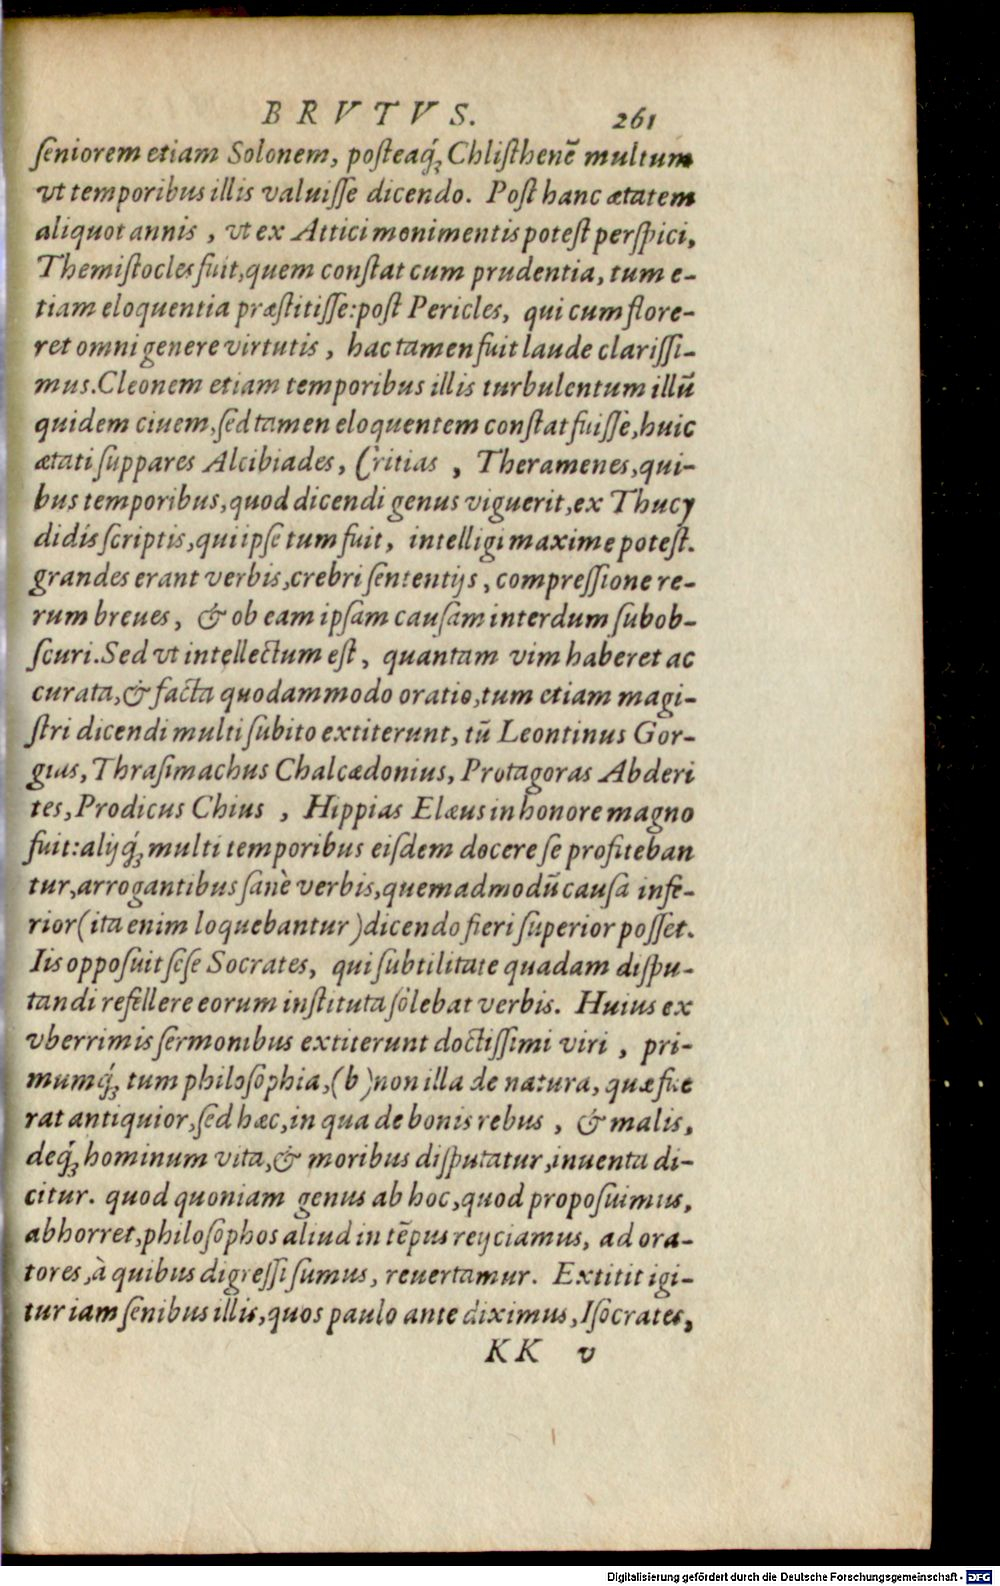 BRVTVS. 261
ſeniorem etiam Solonem, poſteaq́ꝫ Chliſthenē multum
vt temporibus illis valuiſſe dicendo. Poſt hanc ætatem
aliquot annis, vt ex Attici monimentis poteſt perſpici,
Themiſtocles fuit, quem conſtat cum prudentia, tum e-
tiam eloquentia præſtitiſſe: poſt Pericles, qui cum flore-
ret omni genere virtutis, hac tamen fuit laude clariſſi-
mus. Cleonem etiam temporibus illis turbulentum illū
quidem ciuem, ſed tamen eloquentem conſtat fuiſſe, huic
ætati ſuppares Alcibiades, Critias, Theramenes, qui-
bus temporibus, quod dicendi genus viguerit, ex Thucy
didis ſcriptis, qui ipſe tum fuit, intelligi maxime poteſt.
grandes erant verbis, crebri ſententijs, compreſſione re-
rum breues, & ob eam ipſam cauſam interdum ſubob-
ſcuri. Sed vt intellectum eſt, quantam vim haberet ac
curata, & facta quodammodo oratio, tum etiam magi-
ſtri dicendi multi ſubito extiterunt, tū Leontinus Gor-
gias, Thraſimachus Chalcædonius, Protagoras Abderi
tes, Prodicus Chius, Hippias Elæus in honore magno
fuit: alijq́ꝫ multi temporibus eiſdem docere ſe profiteban
tur, arrogantibus ſanè verbis, quemadmodū cauſa infe-
rior (ita enim loquebantur) dicendo fieri ſuperior poſſet.
Iis oppoſuit ſeſe Socrates, qui ſubtilitate quadam diſpu-
tandi refellere eorum inſtituta ſolebat verbis. Huius ex
vberrimis ſermonibus extiterunt doctiſſimi viri, pri-
mumq́ꝫ tum philoſophia, (b) non illa de natura, quæ fue
rat antiquior, ſed hæc, in qua de bonis rebus, & malis,
deq́ꝫ hominum vita, & moribus diſputatur, inuenta di-
citur. quod quoniam genus ab hoc, quod propoſuimus,
abhorret, philoſophos aliud in tēpus reijciamus, ad ora-
tores, à quibus digreſſi ſumus, reuertamur. Extitit igi-
tur iam ſenibus illis, quos paulo ante diximus, Iſocrates,
KK v
Digitalisierung gefördert durch die Deutsche Forschungsgemeinschaft - DFG